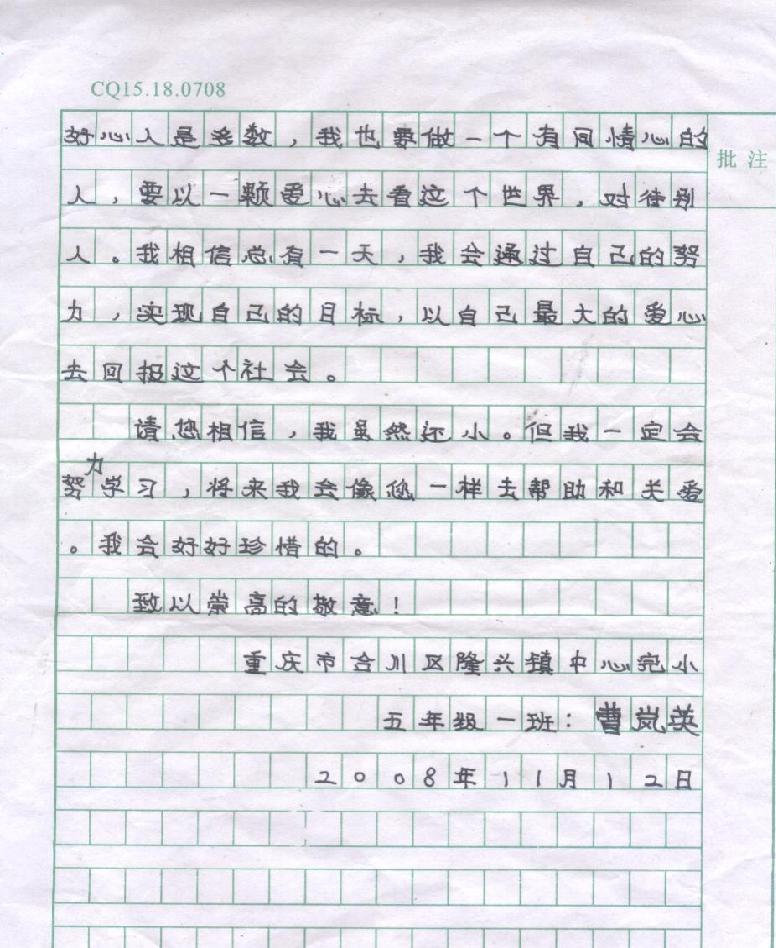 CQ15.18.0708
好心人是多数，我也要做一个有同情心的
批注
人，要以一颗爱心去看这个世界，对待别
人。我相信总有一天，我会通过自己的努
力，实现自己的目标，以自己最大的爱心
去回报这个社会。
请您相信，我虽然还小。但我一定会
努力学习，将来我会像您一样去帮助和关爱
。我会好好珍惜的。
致以崇高的敬意！
重庆市合川区隆兴镇中心完小
五年级一班：曹岚英
2008年11月12日